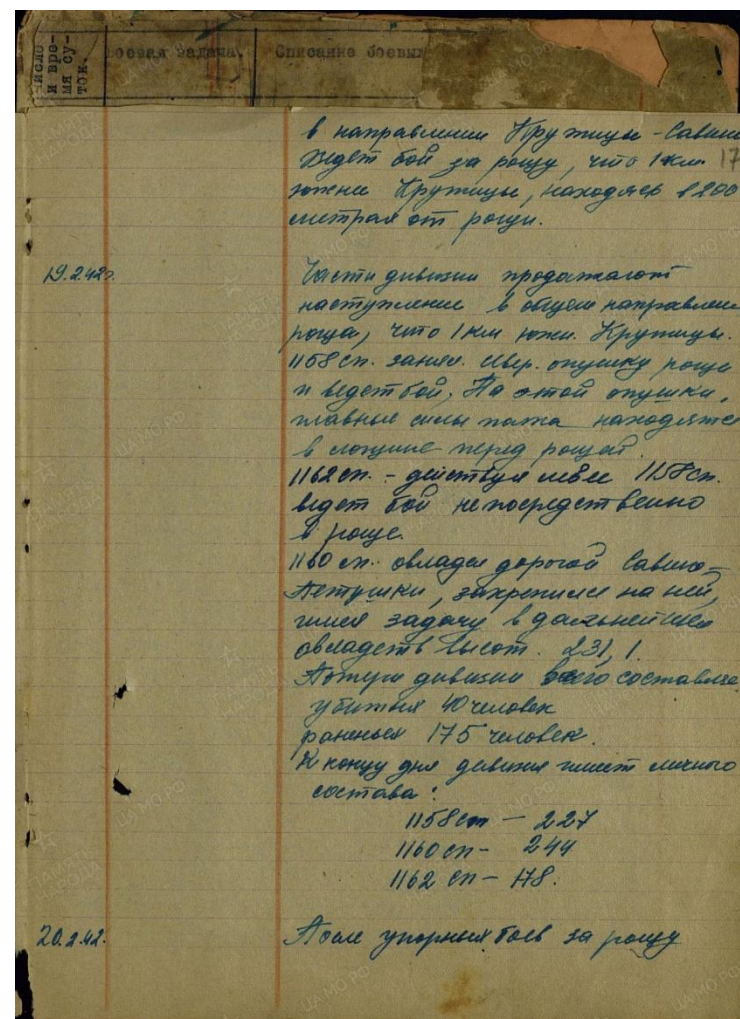 число и вре- мя су- ток.
боевая задача.
Списание боевых
в направлении Кружицы - Савино
Ведет бой за рощу, что 1 км. 17
южнее Кружицы, находясь в 200
метрах от рощи.
19.2.42г.
Части дивизии продолжают
наступление в общем направлен
роща, что 1 км южн. Кружицы.
1158 сп. занял. север. опушку рощи
и ведет бой. На этой опушки,
главные силы полка находятся
в лощине перед рощей.
1162 сп. - действуя левее 1158 сп.
ведет бой непосредственно
в роще.
1160 сп. овладел дорогой Савино-
Петушки, закрепился на ней,
имея задачу в дальнейшем
овладеть высот. 231,1.
Потери дивизии всего составляе
убитых 40 человек
раненых 175 человек.
К концу дня дивизия имеет личного
состава:
1158 сп - 227
1160 сп - 244
1162 сп - 178.
20.2.42.
После упорных боев за рощу